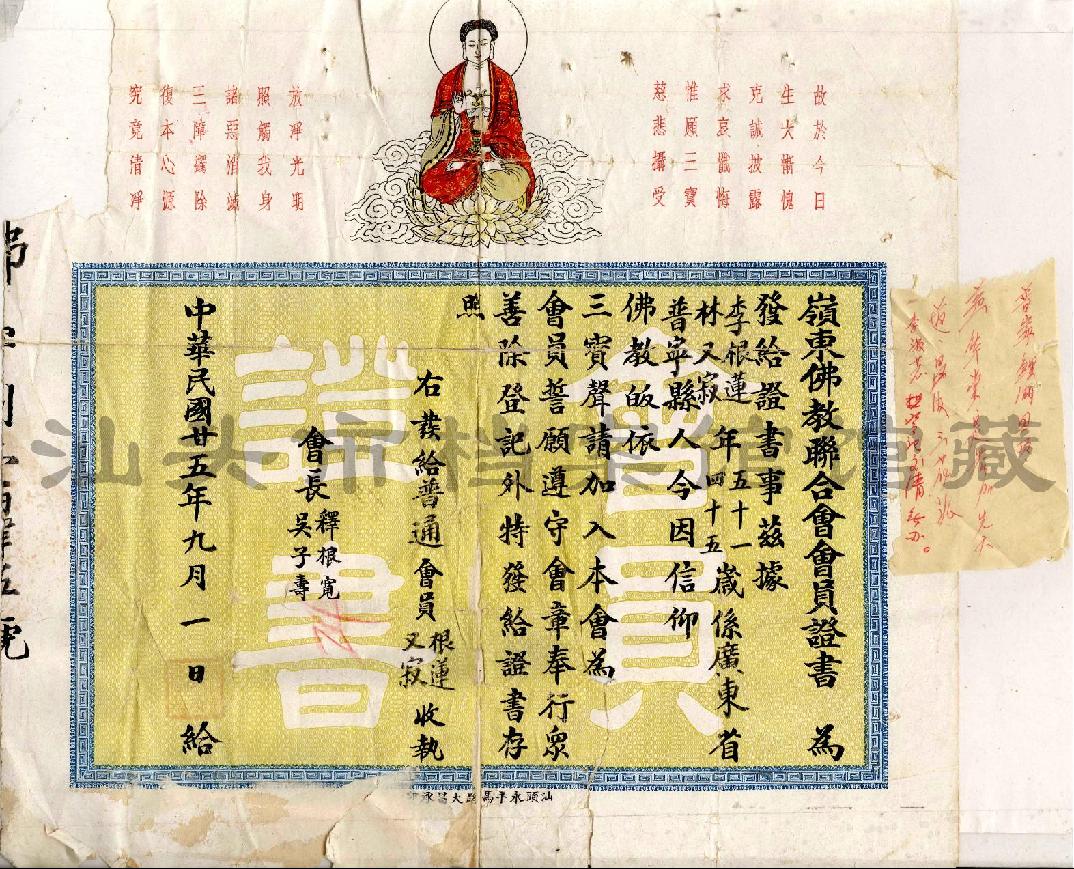 故於今日
生大慚愧
克誠披露
求哀懺悔
惟願三寶
慈悲攝受
放淨光明
照觸我身
諸惡消滅
三障蠲除
復本心源
究竟清淨
嶺東佛教聯合會會員證書 為
發給證書事茲據
李根蓮 年五十一
林又寂 年四十五
歲係廣東省
普寧縣人今因信仰
佛教皈依
三寶聲請加入本會為
會員誓願遵守會章奉行眾
善除登記外特發給證書存
照
右發給普通會員
根蓮
又寂
收執
會長
釋根寬
吳子壽
中華民國廿五年九月一日給
會員
證書
汕头市档案馆馆藏